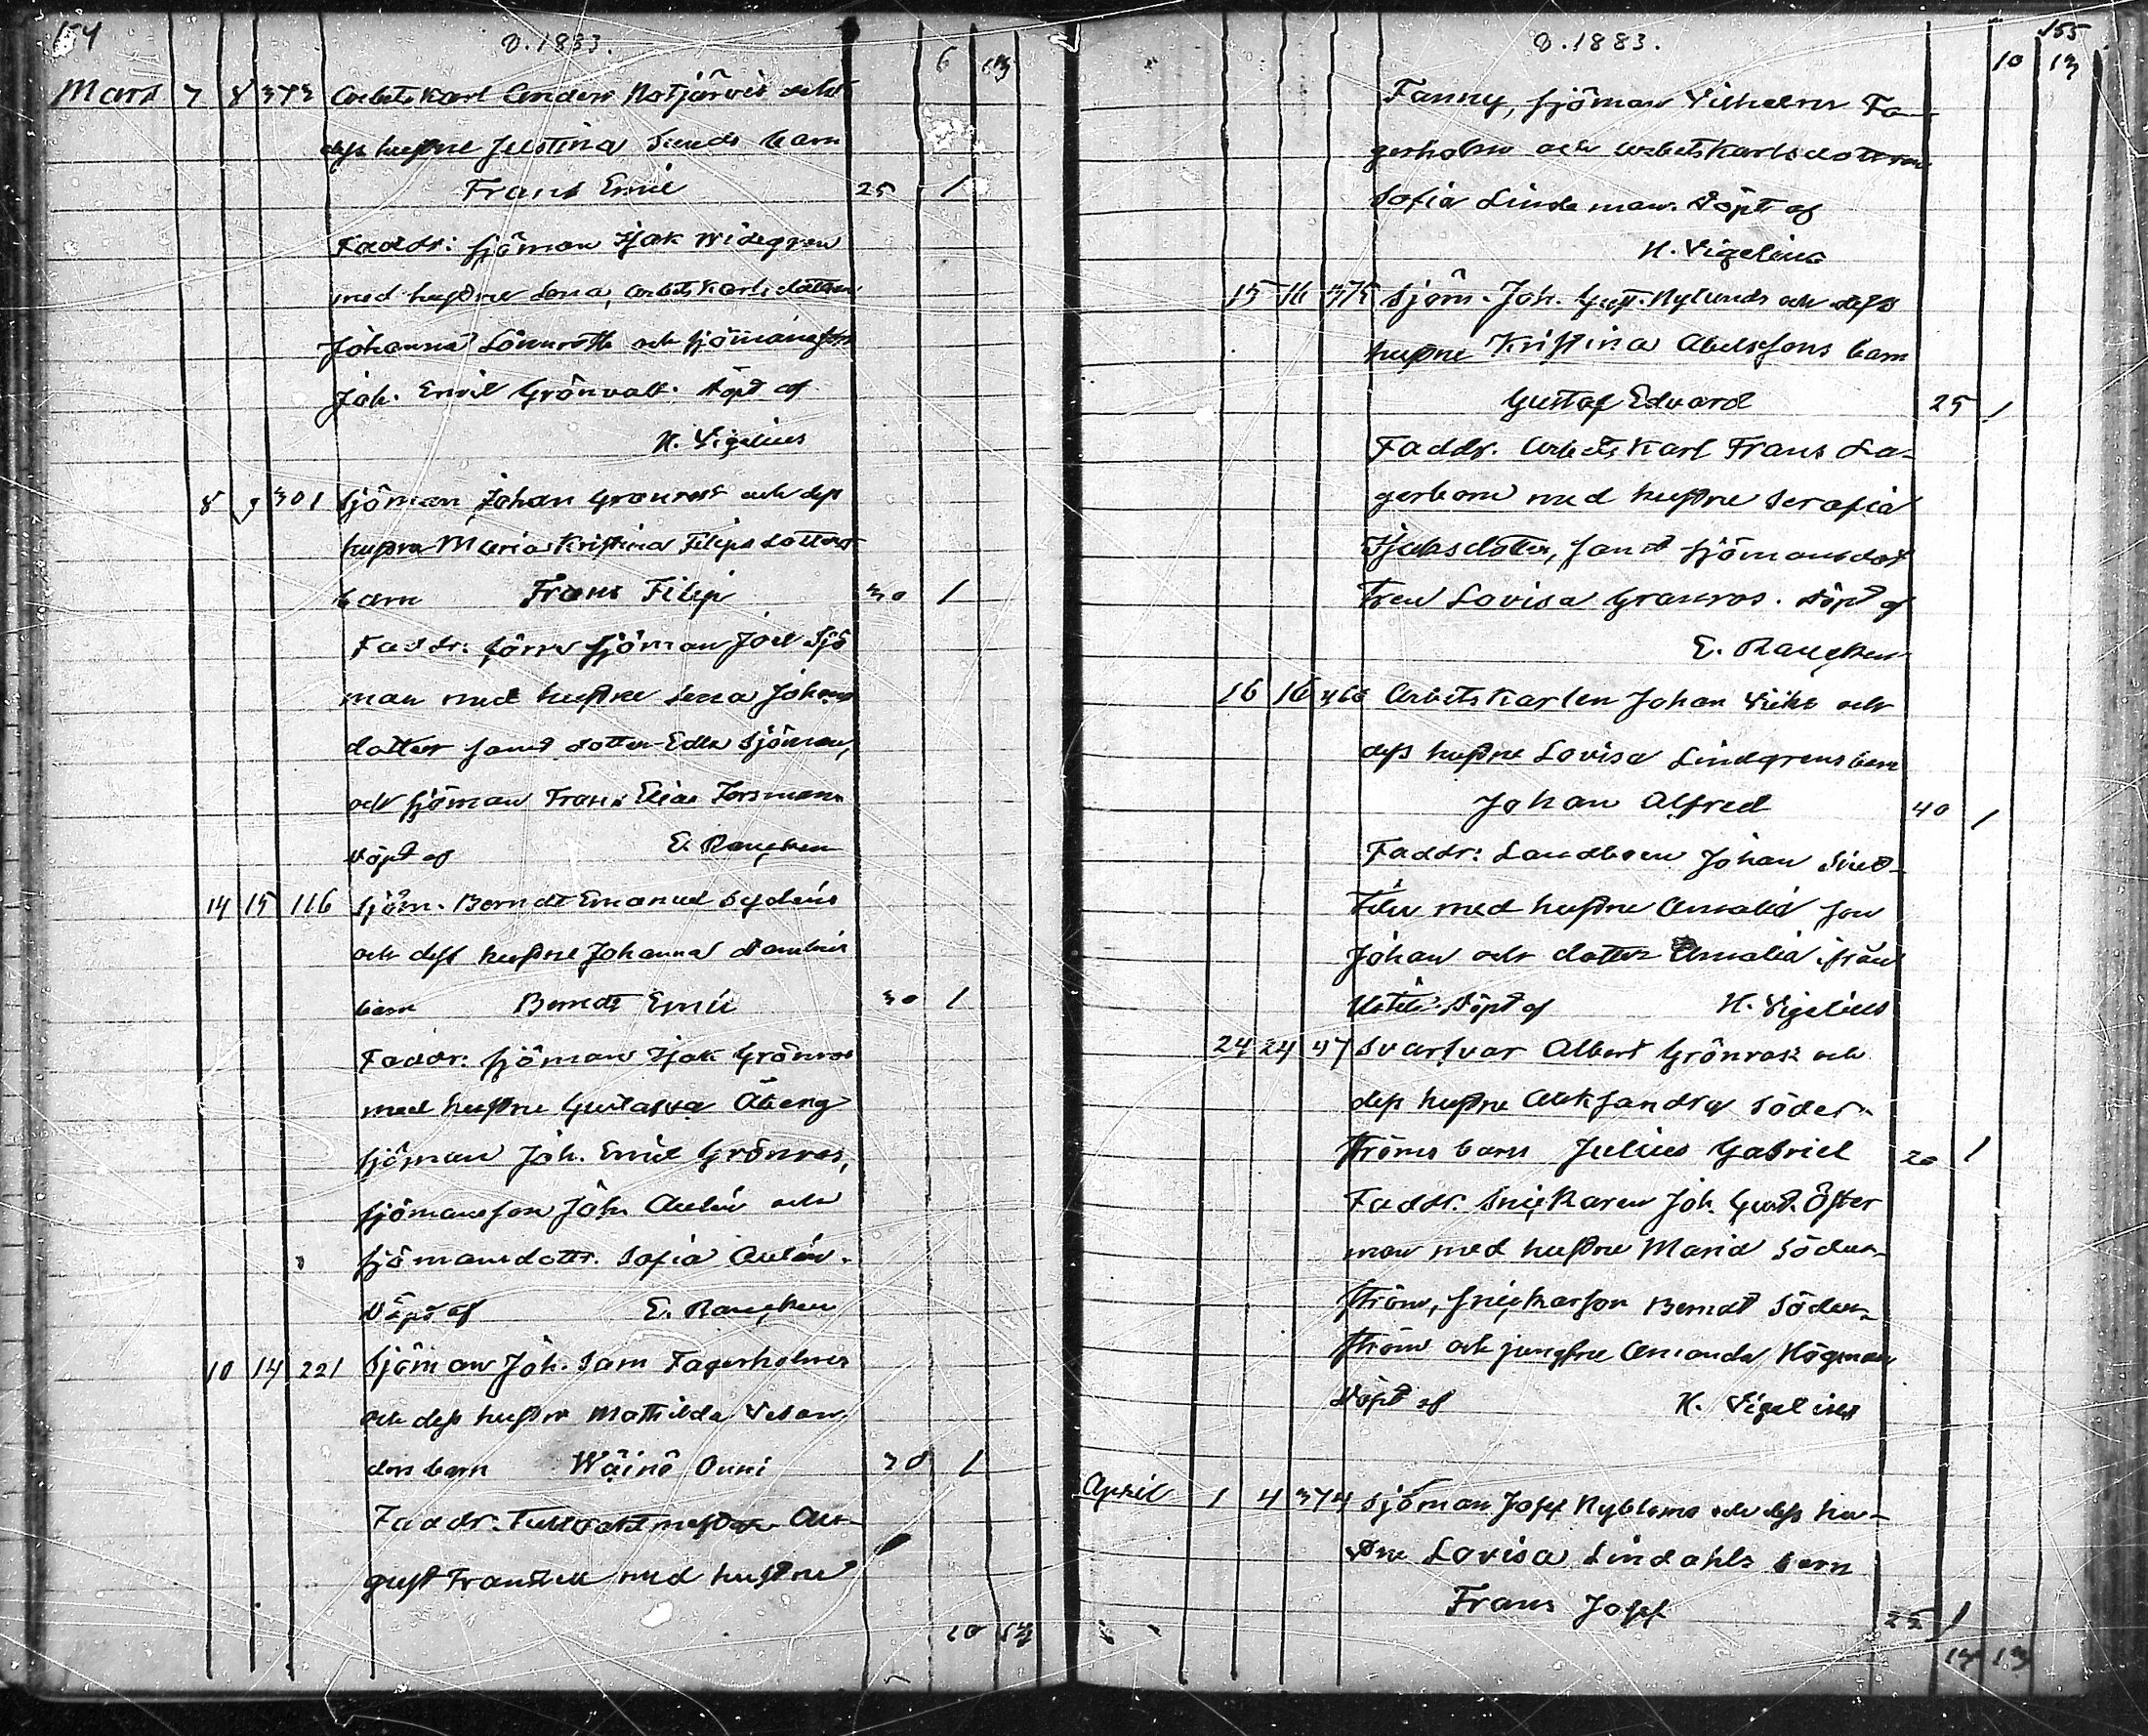 154
D. 1883.
6 13
Mars 7 8 373 Arbetskarl Anders Kotjärvis och
dess hustru Justina Sunds barn
Frans Emil 25 1
Faddr: sjöman Isak Widegren
med hustru Lena, arbetskarlsdottren
Johanna Lönnroth och sjömansson
Joh. Emil Grönvall. Döpt af
H. Vigelius
8 9 301 Sjöman Johan Granroos och dess
hustru Maria Kristina Filipsdotters
barn Frans Filip 30 1
Faddr: förre sjöman Joel Sjö
man med hustru Lena Johans
dotter samt dotter Edla Sjöman,
och sjöman Frans Elias Forsman
Döpt af E. Rancken
14 15 116 Sjöm. Berndt Emanuel Sydéns
och dess hustru Johanna
barn Berndt Emil 30 1
Faddr: sjöman Isak Grönros
med hustru Gustafva Åberg
sjöman Joh. Emil Grönros,
sjömansson Joh. Aulin och
sjömansdottr. Sofia Aulin.
Döpt af E. Rancken
10 14 221 Sjöman Joh. Sam Fagerholms
och dess hustru Mathilda Velan
ders barn Wäinö Onni 30 1
Faddr. Tullvaktmästar Au-
gust med hustru
10 13
155
D. 1883.
10 13
Fanny, sjöman Vilhelm Fa-
gerholm och arbetskarlsdottren
Sofia Lindeman. Döpt af
H. Vigelius
15 16 375 Sjöm. Joh. Gust. Nylunds och dess
hustru Kristina Abelssons barn
Gustaf Edvard 25 1
Faddr. Arbetskarl Frans La-
gerbom med hustru Serafia
Isaksdotter, samt sjömansdot
tren Lovisa Granros. Döpt af
E. Rancken
16 16 466 Arbetskarlen Johan Viiks och
dess hustru Lovisa Lindgrens barn
Johan Alfred 40 1
Faddr: Landboen Johan
med hustru Amalia son
Johan och dotter Amalia ifrån
Döpt af H. Vigelius
24 24 47 Svarfvar Albert Grönroos och
dess hustru Aleksandra Söder-
ströms barn Julius Gabriel 20 1
Faddr. Snickaren Joh. Gust. Öster
man med hustru Maria Söder-
ström, snickarson Berndt Söder-
ström och jungfru Amanda Högman
Döpt af H. Vigelius
April 1 4 374 Sjöman Josef Nybloms och dess hu-
stru Lovisa Lindahls barn
Frans Josef 25 1
14 13